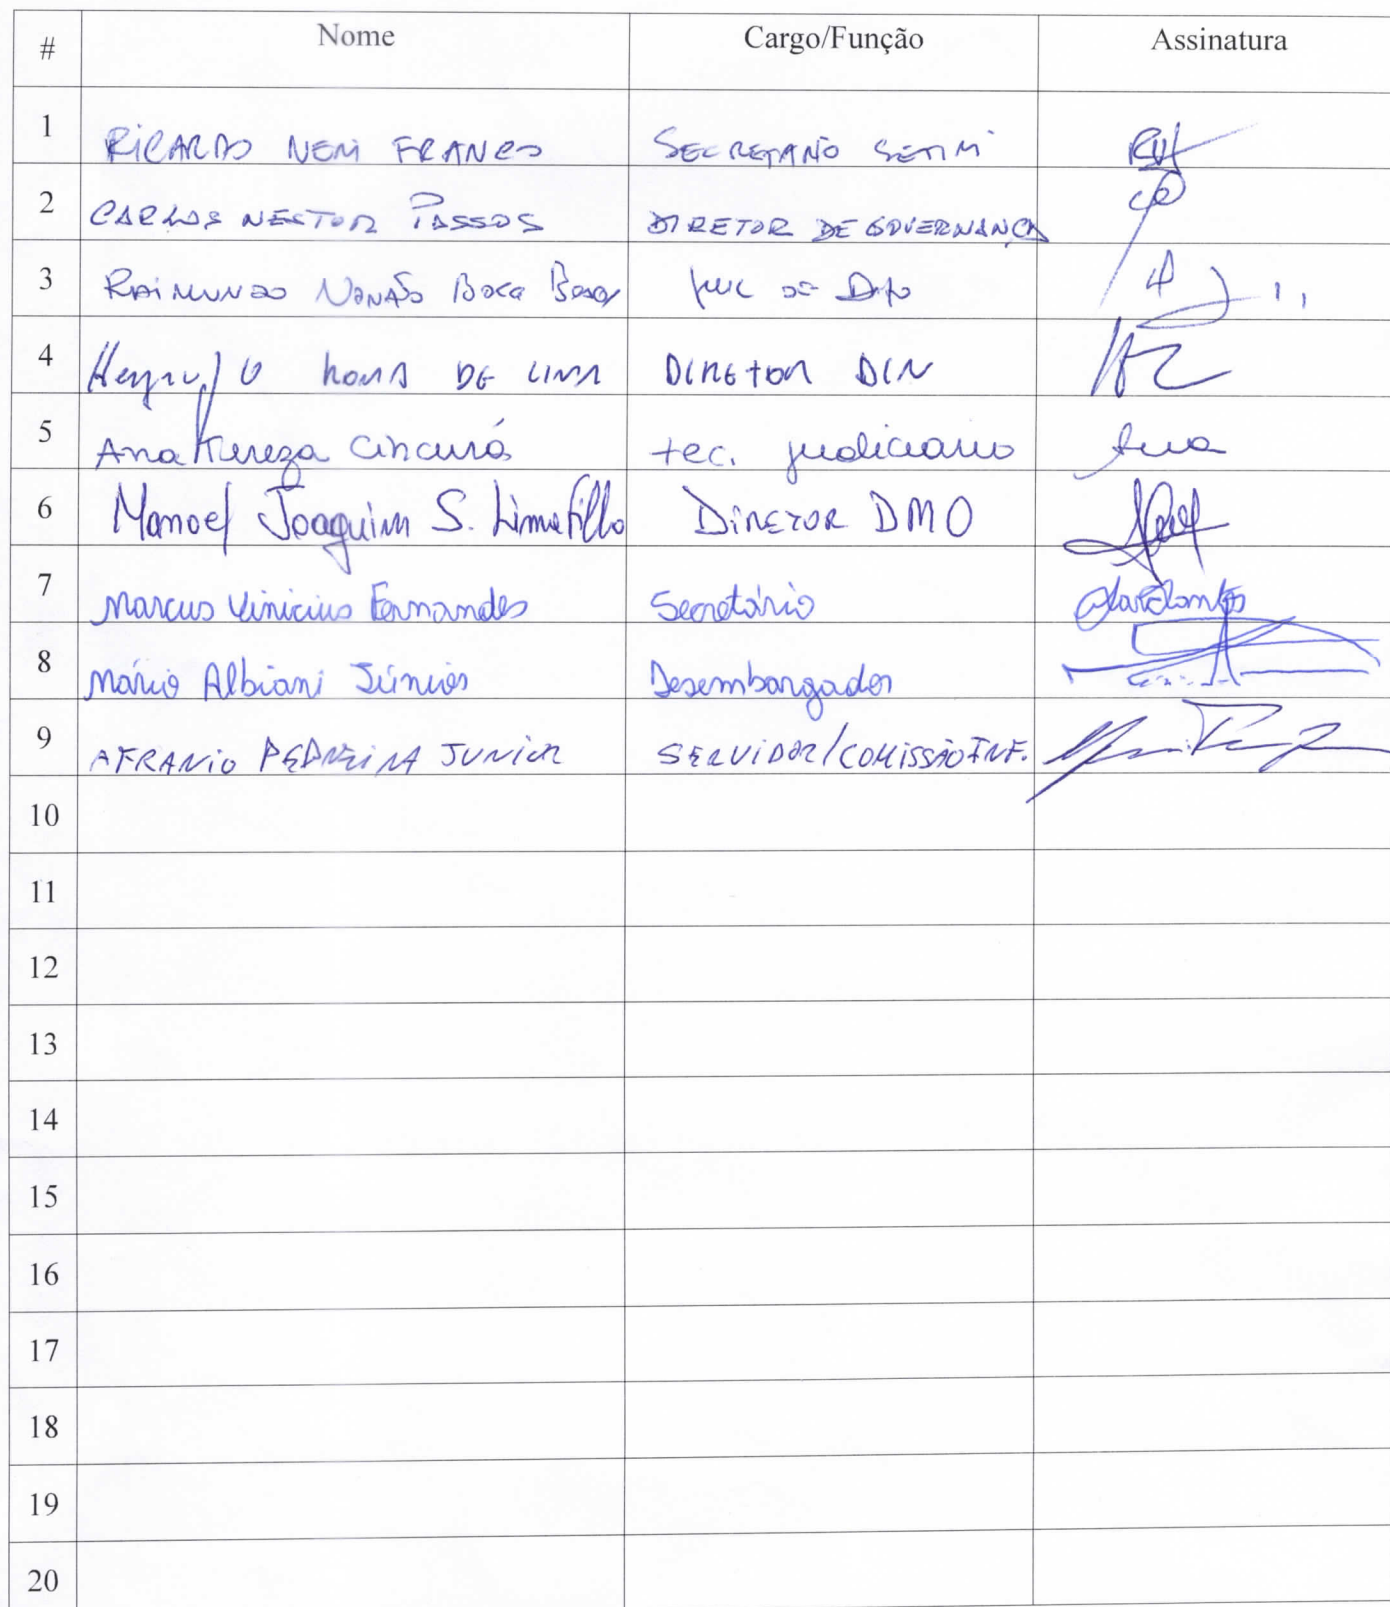 # Nome Cargo/Função Assinatura
1 RICARDO NERI FRANCO SECRETARIO SETIM
2 CARLOS NESTOR PASSOS DIRETOR DE GOVERNANÇA
3 RAIMUNDO NONATO
4 ROMA DE LIMA DIRETOR DIN
5 Ana Tereza Cincurá tec. judiciario Ana
6 Manoel Joaquim S. Lima Filho DIRETOR DMO
7 Marcus Vinicius Fernandes Secretário
8 Mário Albiani Júnior Desembargador
9 AFRANIO PEDREIRA JUNIOR SERVIDOR/COMISSÃO INF.
10
11
12
13
14
15
16
17
18
19
20